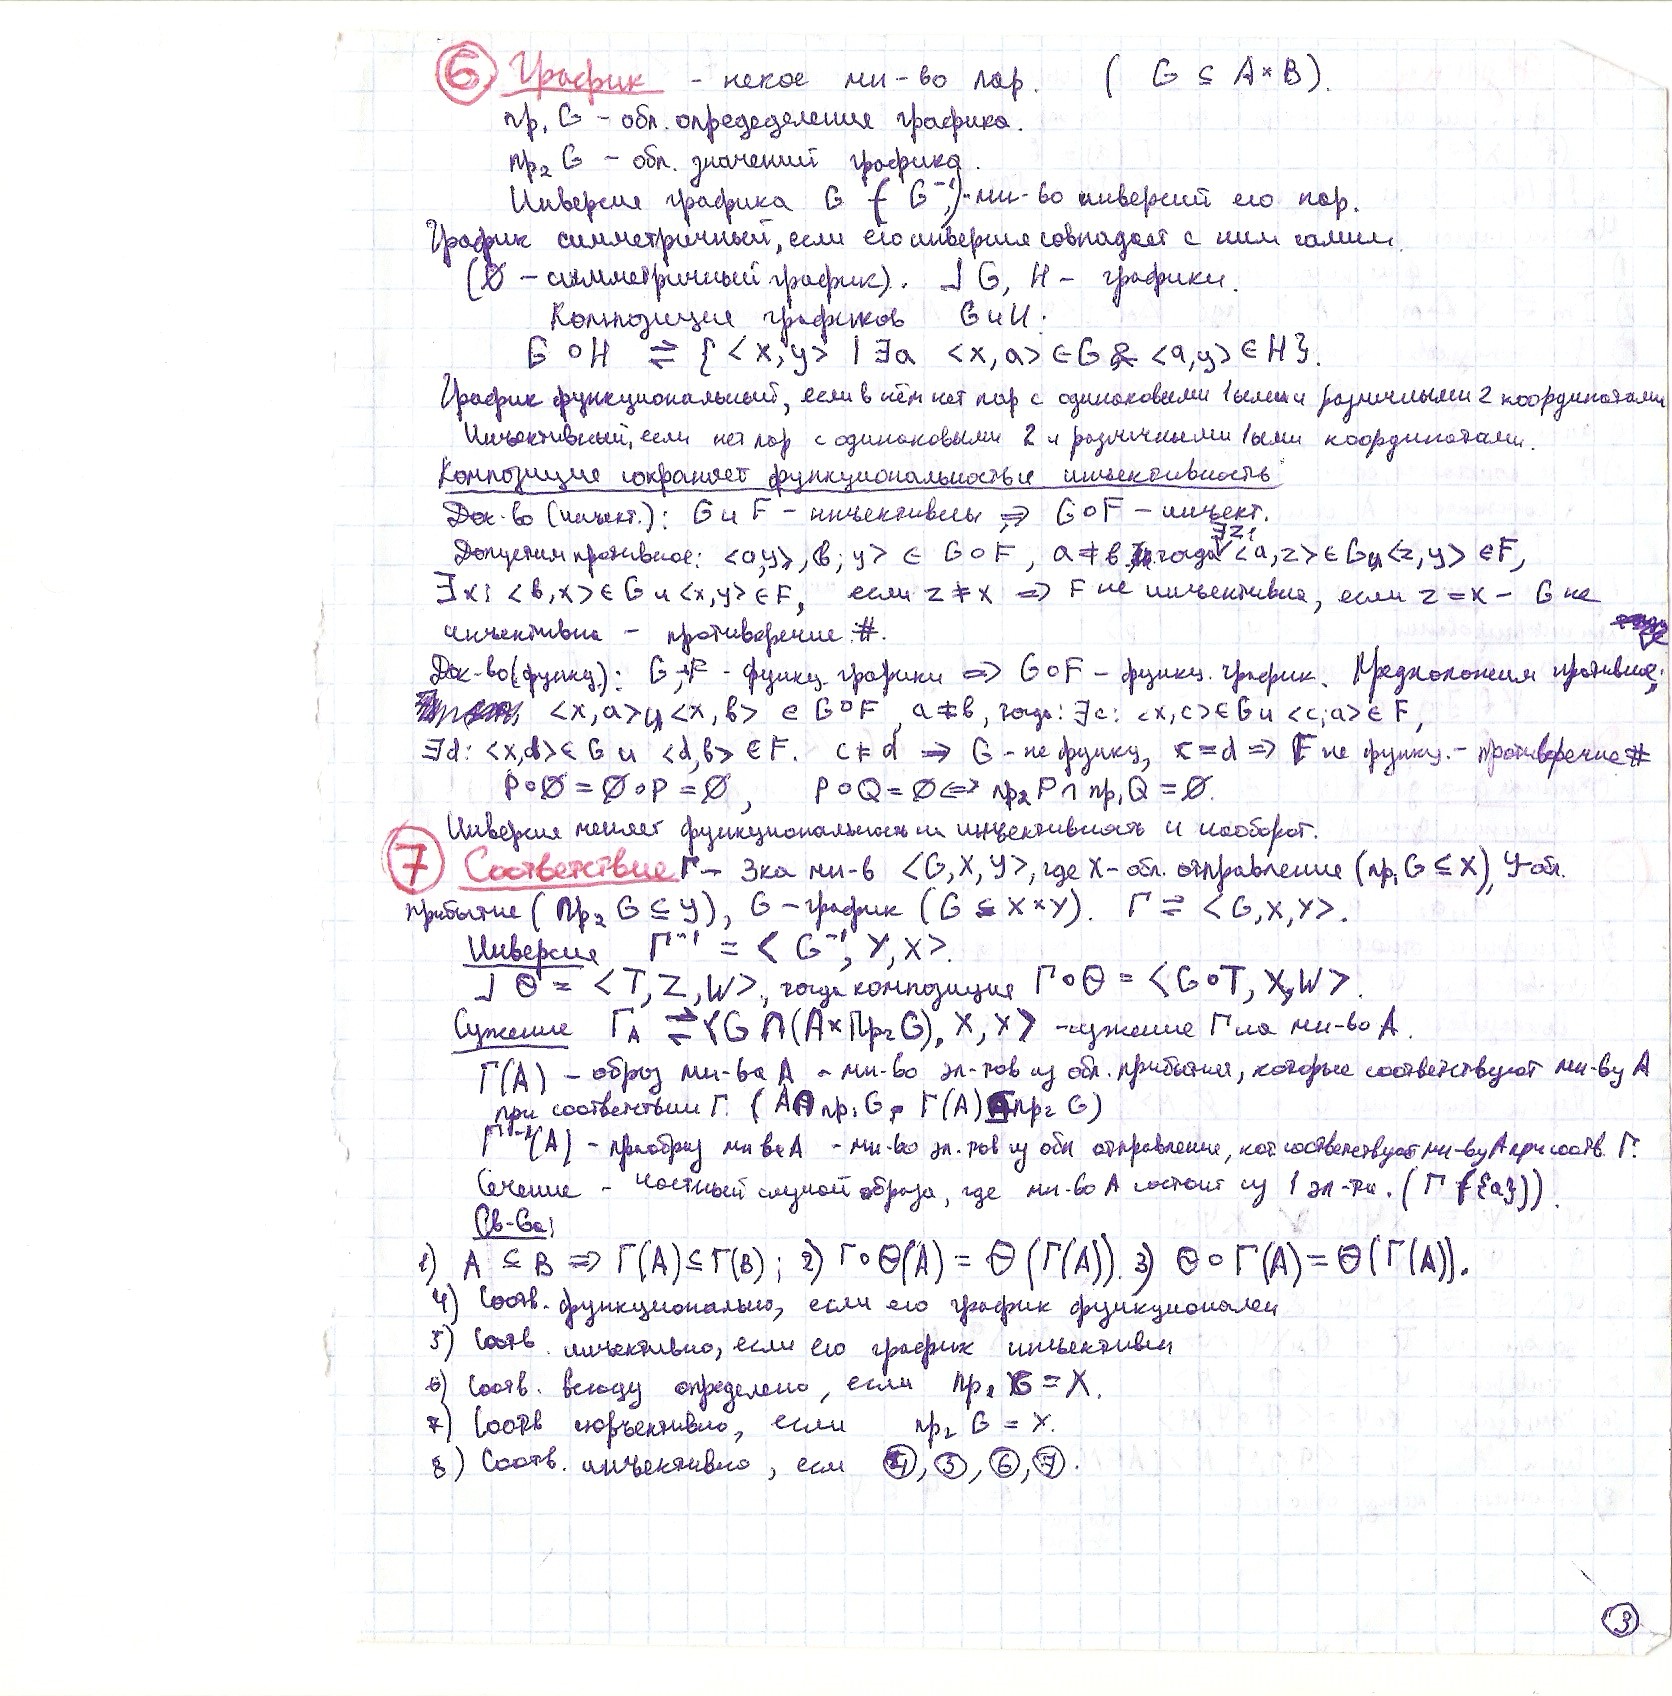 ⑥ График - некое мн-во пар. ( G ⊆ A×B ).
пр₁ G - обл. опредеделения графика.
пр₂ G - обл. значений графика.
Инверсия графика G - ( G⁻¹ ) - мн-во инверсий его пар.
График симметричный, если его инверсия совпадает с ним самим.
(Ø - симметричный график). ⅃ G, H - графики.
Композиция графиков G и H:
G ∘ H ⇌ { <x, y> | ∃a <x, a> ∈ G & <a, y> ∈ H }.
График функциональный, если в нём нет пар с одинаковыми 1ыми и различными 2 координатами
Инъективный, если нет пар с одинаковыми 2 и различными 1ыми координатами.
Композиция сохраняет функциональность и инъективность
Док-во (инъект.): G и F - инъективны ⇒ G∘F - инъект.
Допустим противное: <a, y>, <b; y> ∈ G∘F, a ≠ b, тогда ∃z: <a, z> ∈ G и <z, y> ∈ F,
∃x: <b, x> ∈ G и <x, y> ∈ F, если z ≠ x ⇒ F не инъективна, если z = x - G не
инъективна - противоречие #.
Док-во (функц.): G, F - функц. графики ⇒ G∘F - функц. график. Предположим противное:
<x, a> и <x, b> ∈ G∘F, a ≠ b, тогда: ∃c: <x, c> ∈ G и <c; a> ∈ F,
∃d: <x, d> ∈ G и <d, b> ∈ F. c ≠ d ⇒ G - не функц, c = d ⇒ F не функц. - противоречие #
P∘Ø = Ø∘P = Ø, P∘Q = Ø ⇔ пр₂ P ∩ пр₁ Q = Ø.
Инверсия меняет функциональность на инъективность и наоборот.
⑦ Соответствие Г - 3ка мн-в <G, X, Y>, где X - обл. отправления (пр₁ G ⊆ X), Y - обл.
прибытия ( Пр₂ G ⊆ Y ), G - график ( G ⊆ X×Y ). Г ⇌ <G, X, Y>.
Инверсия Г⁻¹ = < G⁻¹, Y, X>.
⅃ Θ = <T, Z, W>, тогда композиция Г∘Θ = <G∘T, X, W>.
Сужение Г_A ⇌ <G ∩ (A×Пр₂ G), X, Y> - сужение Г на мн-во A.
Г(A) - образ мн-ва A - мн-во эл-тов из обл. прибытия, которые соответствуют мн-ву A
при соответствии Г. ( A ∩ пр₁ G, Г(A) ⊆ пр₂ G )
Г⁻¹(A) - прообраз мн-ва A - мн-во эл-тов из обл отправления, кот соответствуют мн-ву A при соотв. Г.
Сечение - частный случай образа, где мн-во A состоит из 1 эл-та. ( Г ({a}) ).
Св-ва:
1) A ⊆ B ⇒ Г(A) ⊆ Г(B); 2) Г∘Θ(A) = Θ(Г(A)). 3) Θ∘Г(A) = Θ(Г(A)).
4) Соотв. функционально, если его график функционален
5) Соотв. инъективно, если его график инъективен
6) Соотв. всюду определено, если пр₁ G = X.
7) Соотв сюръективно, если пр₂ G = Y.
8) Соотв. инъективно, если ④, ⑤, ⑥, ⑦.
③